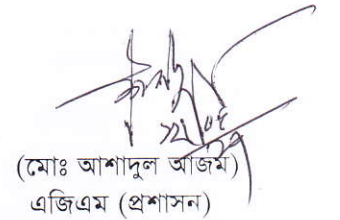 (মোঃ আশাদুল আজম)
এজিএম (প্রশাসন)